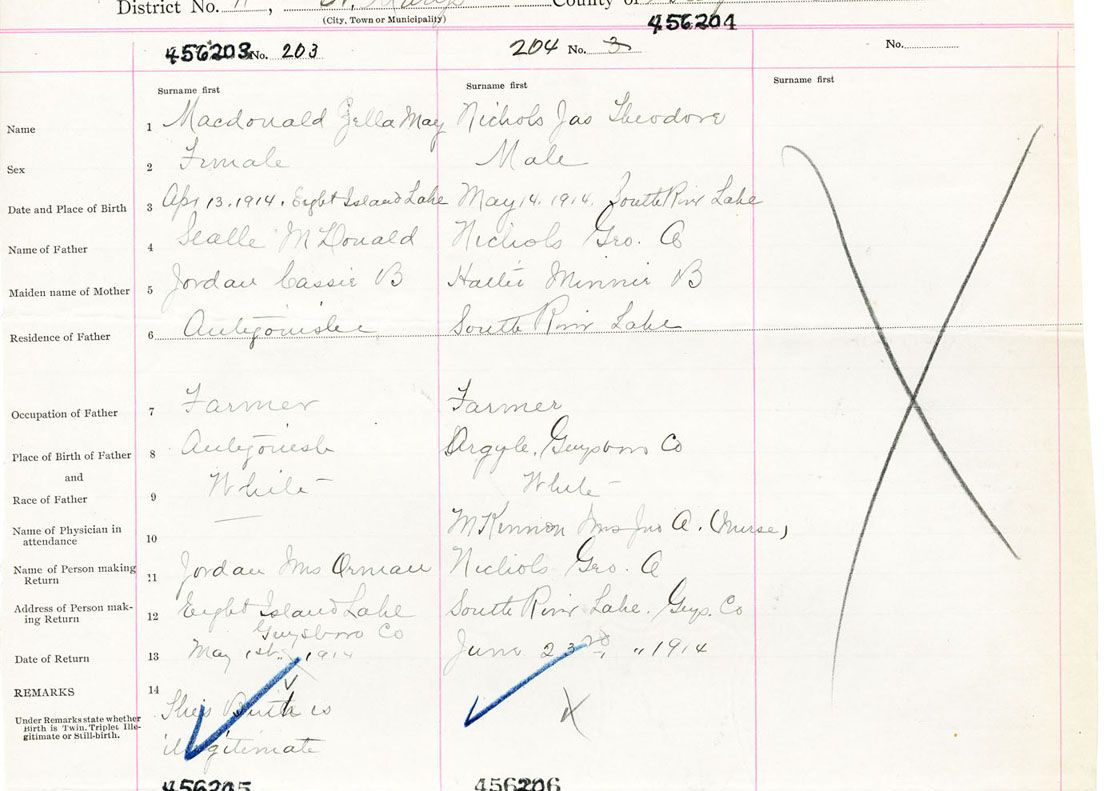 District No. 11, St. Marys County of
(City, Town or Municipality)
456203 No. 203 204 No. 3 456204 No.
Surname first Surname first Surname first
Name 1 Macdonald Zella May Nichols Jas Theodore
Sex 2 Female Male
Date and Place of Birth 3 Apr 13. 1914. Eight Island Lake May 14. 1914. South River Lake
Name of Father 4 McDonald Nichols Geo. A
Maiden name of Mother 5 Jordan Cassie B Minnie B
Residence of Father 6 Antigonish South River Lake
Occupation of Father 7 Farmer Farmer
Place of Birth of Father 8 Antigonish Argyle, Guysboro Co
and
Race of Father 9 White White
Name of Physician in attendance 10 — McKinnon Mrs Jno A. (Nurse)
Name of Person making Return 11 Jordan Mrs Orman Nichols Geo. A
Address of Person making Return 12 Eight Island Lake South River Lake. Guys. Co
Guysboro Co
Date of Return 13 May 1st. 1914 June 23rd " 1914
REMARKS 14 This Birth is
Under Remarks state whether Birth is Twin, Triplet Illegitimate or Still-birth.
illegitimate
456205 456206